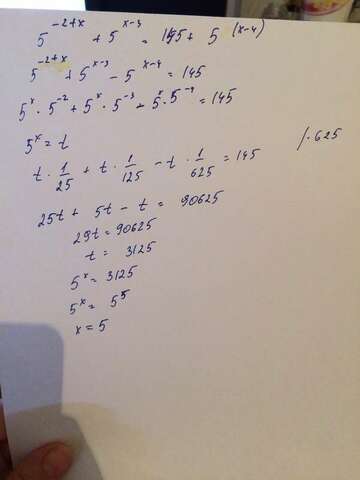 5^{-2+x} + 5^{x-3} = 145 + 5^{(x-4)}
5^{-2+x} + 5^{x-3} - 5^{x-4} = 145
5^x · 5^{-2} + 5^x · 5^{-3} + 5^x · 5^{-4} = 145
5^x = t
t · 1/25 + t · 1/125 - t · 1/625 = 145 /· 625
25t + 5t - t = 90625
29t = 90625
t = 3125
5^x = 3125
5^x = 5^5
x = 5